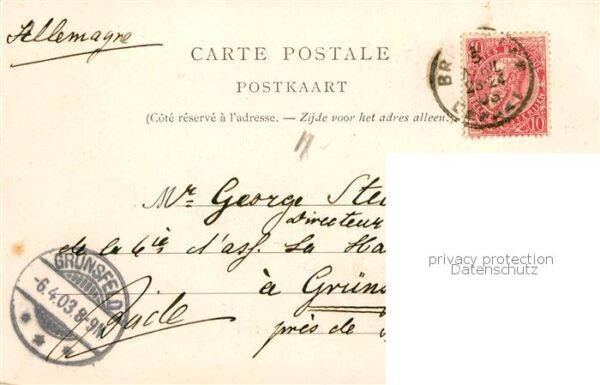 Allemagne
CARTE POSTALE
POSTKAART
(Côté réservé à l'adresse. — Zijde voor het adres alleen.)
Mr George Ste
Directeur
de la Cie d'ass. La Ha
à Grün
Bade
près de
GRÜNSFELD
-6.4.03.8-9N
BR
10
10
privacy protection
Datenschutz